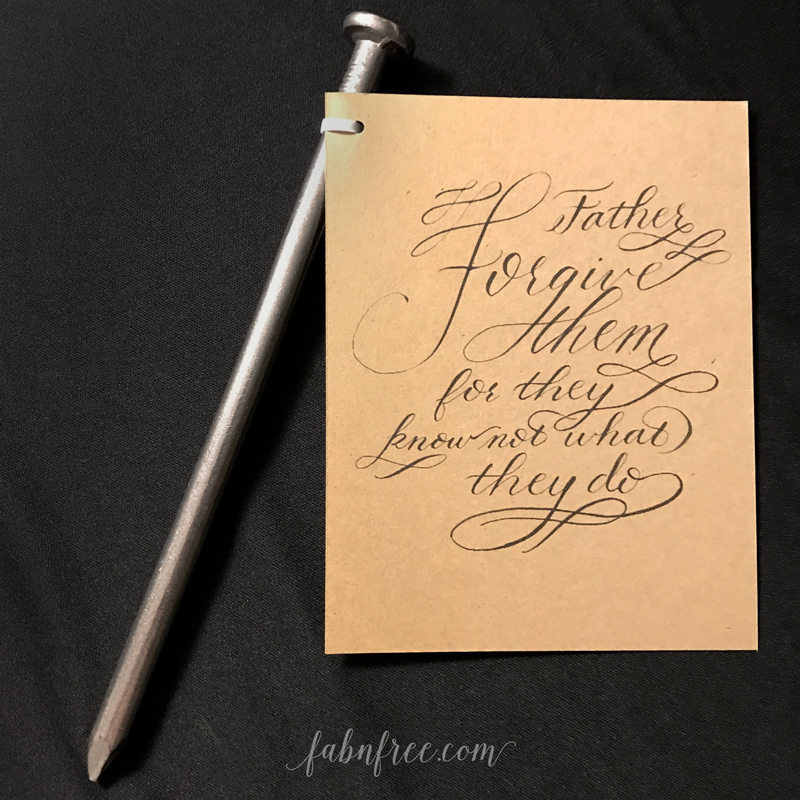 Father
Forgive
them
for they
know not what
they do
fabnfree.com